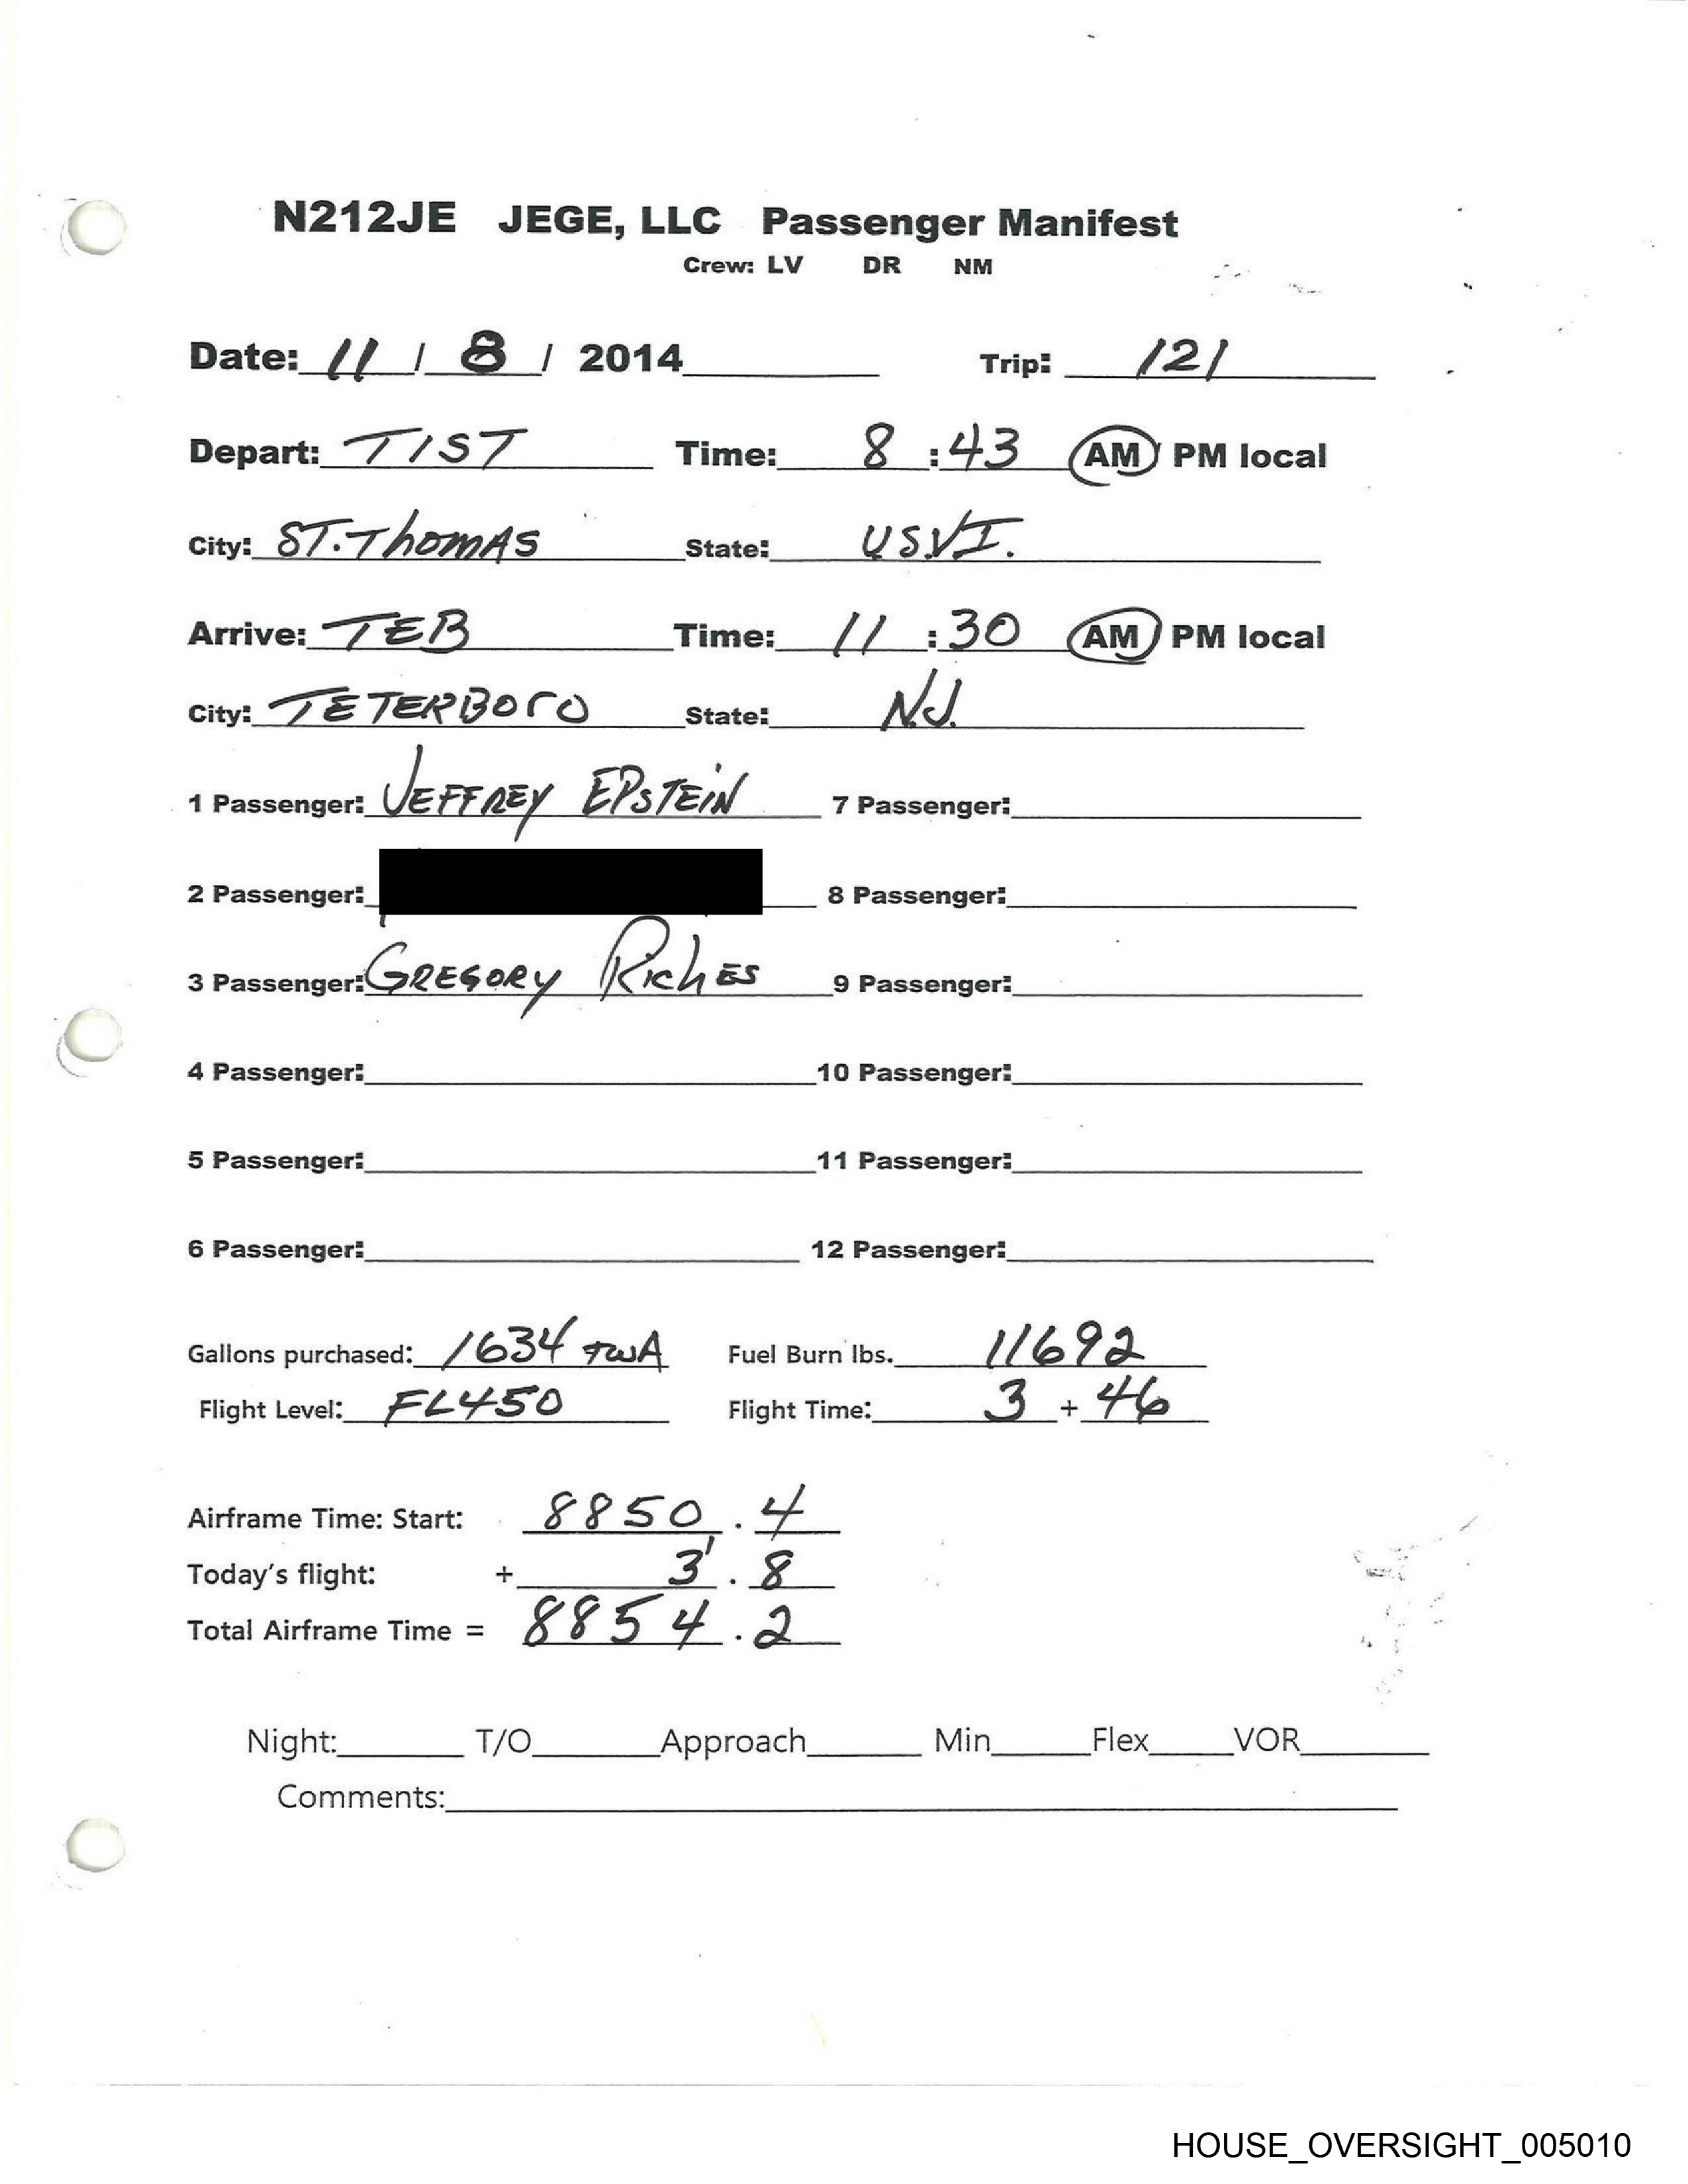 N212JE JEGE, LLC Passenger Manifest
Crew: LV DR NM
Date: 11 / 8 / 2014 Trip: 121
Depart: TIST Time: 8 :43 AM/ PM local
City: ST. Thomas State: U.S.V.I.
Arrive: TEB Time: 11 :30 AM/ PM local
City: TETERBORO State: N.J.
1 Passenger: JEFFREY EPSTEIN 7 Passenger:
2 Passenger: 8 Passenger:
3 Passenger: GREGORY RICHES 9 Passenger:
4 Passenger: 10 Passenger:
5 Passenger: 11 Passenger:
6 Passenger: 12 Passenger:
Gallons purchased: 1634 TWA Fuel Burn lbs. 11692
Flight Level: FL450 Flight Time: 3 + 46
Airframe Time: Start: 8850 . 4
Today's flight: + 3 . 8
Total Airframe Time = 8854 . 2
Night: T/O Approach Min Flex VOR
Comments:
HOUSE_OVERSIGHT_005010